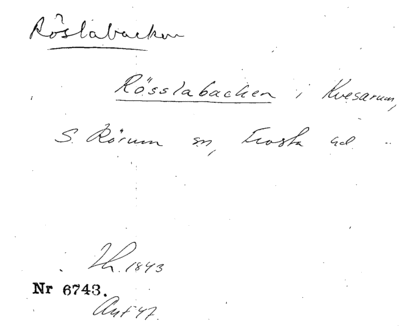 Röslabacken
Rösslabacken i Kvesarum,
S. Rörum sn, Frosta hd
Th. 1843
Nr 6743.